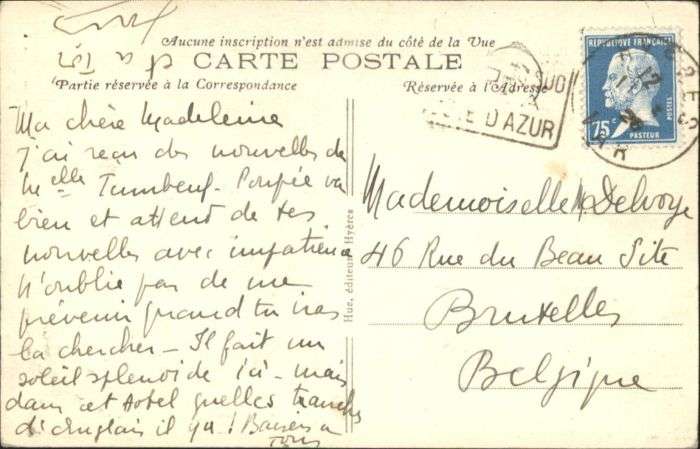 Aucune inscription n'est admise du côté de la Vue
CARTE POSTALE
Partie réservée à la Correspondance
Réservée à l'Adresse
Ma chère Madeleine
j'ai reçu des nouvelles de
Melle Tumbeuf. Poupée va
bien et attend de tes
nouvelles avec impatience
N'oublie pas de me
prévenir quand tu iras
la chercher - Il fait un
soleil splendide ici - mais
dans cet Hotel quelles tranches
d'Anglais il y a! Baisers à
tous
Hue, éditeur, Hyères
D'AZUR
RÉPUBLIQUE FRANÇAISE
75c
POSTES
PASTEUR
VAR
Mademoiselle M. Delvoye
46 Rue du Beau Site
Bruxelles
Belgique